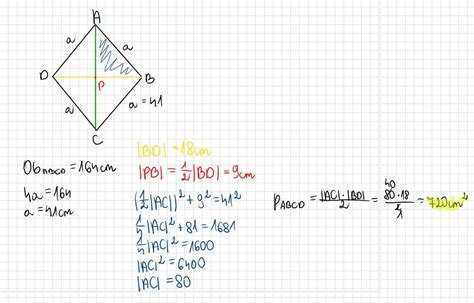 A
a
a
D
B
P
a
a = 41
C
Ob_ABCD = 164cm
4a = 164
a = 41cm
|BD| = 18cm
|PB| = 1/2 |BD| = 9cm
(1/2 |AC|)² + 9² = 41²
1/4 |AC|² + 81 = 1681
1/4 |AC|² = 1600
|AC|² = 6400
|AC| = 80
P_ABCD = |AC|·|BD| / 2 = 40 80·18 / 2 1 = 720cm²